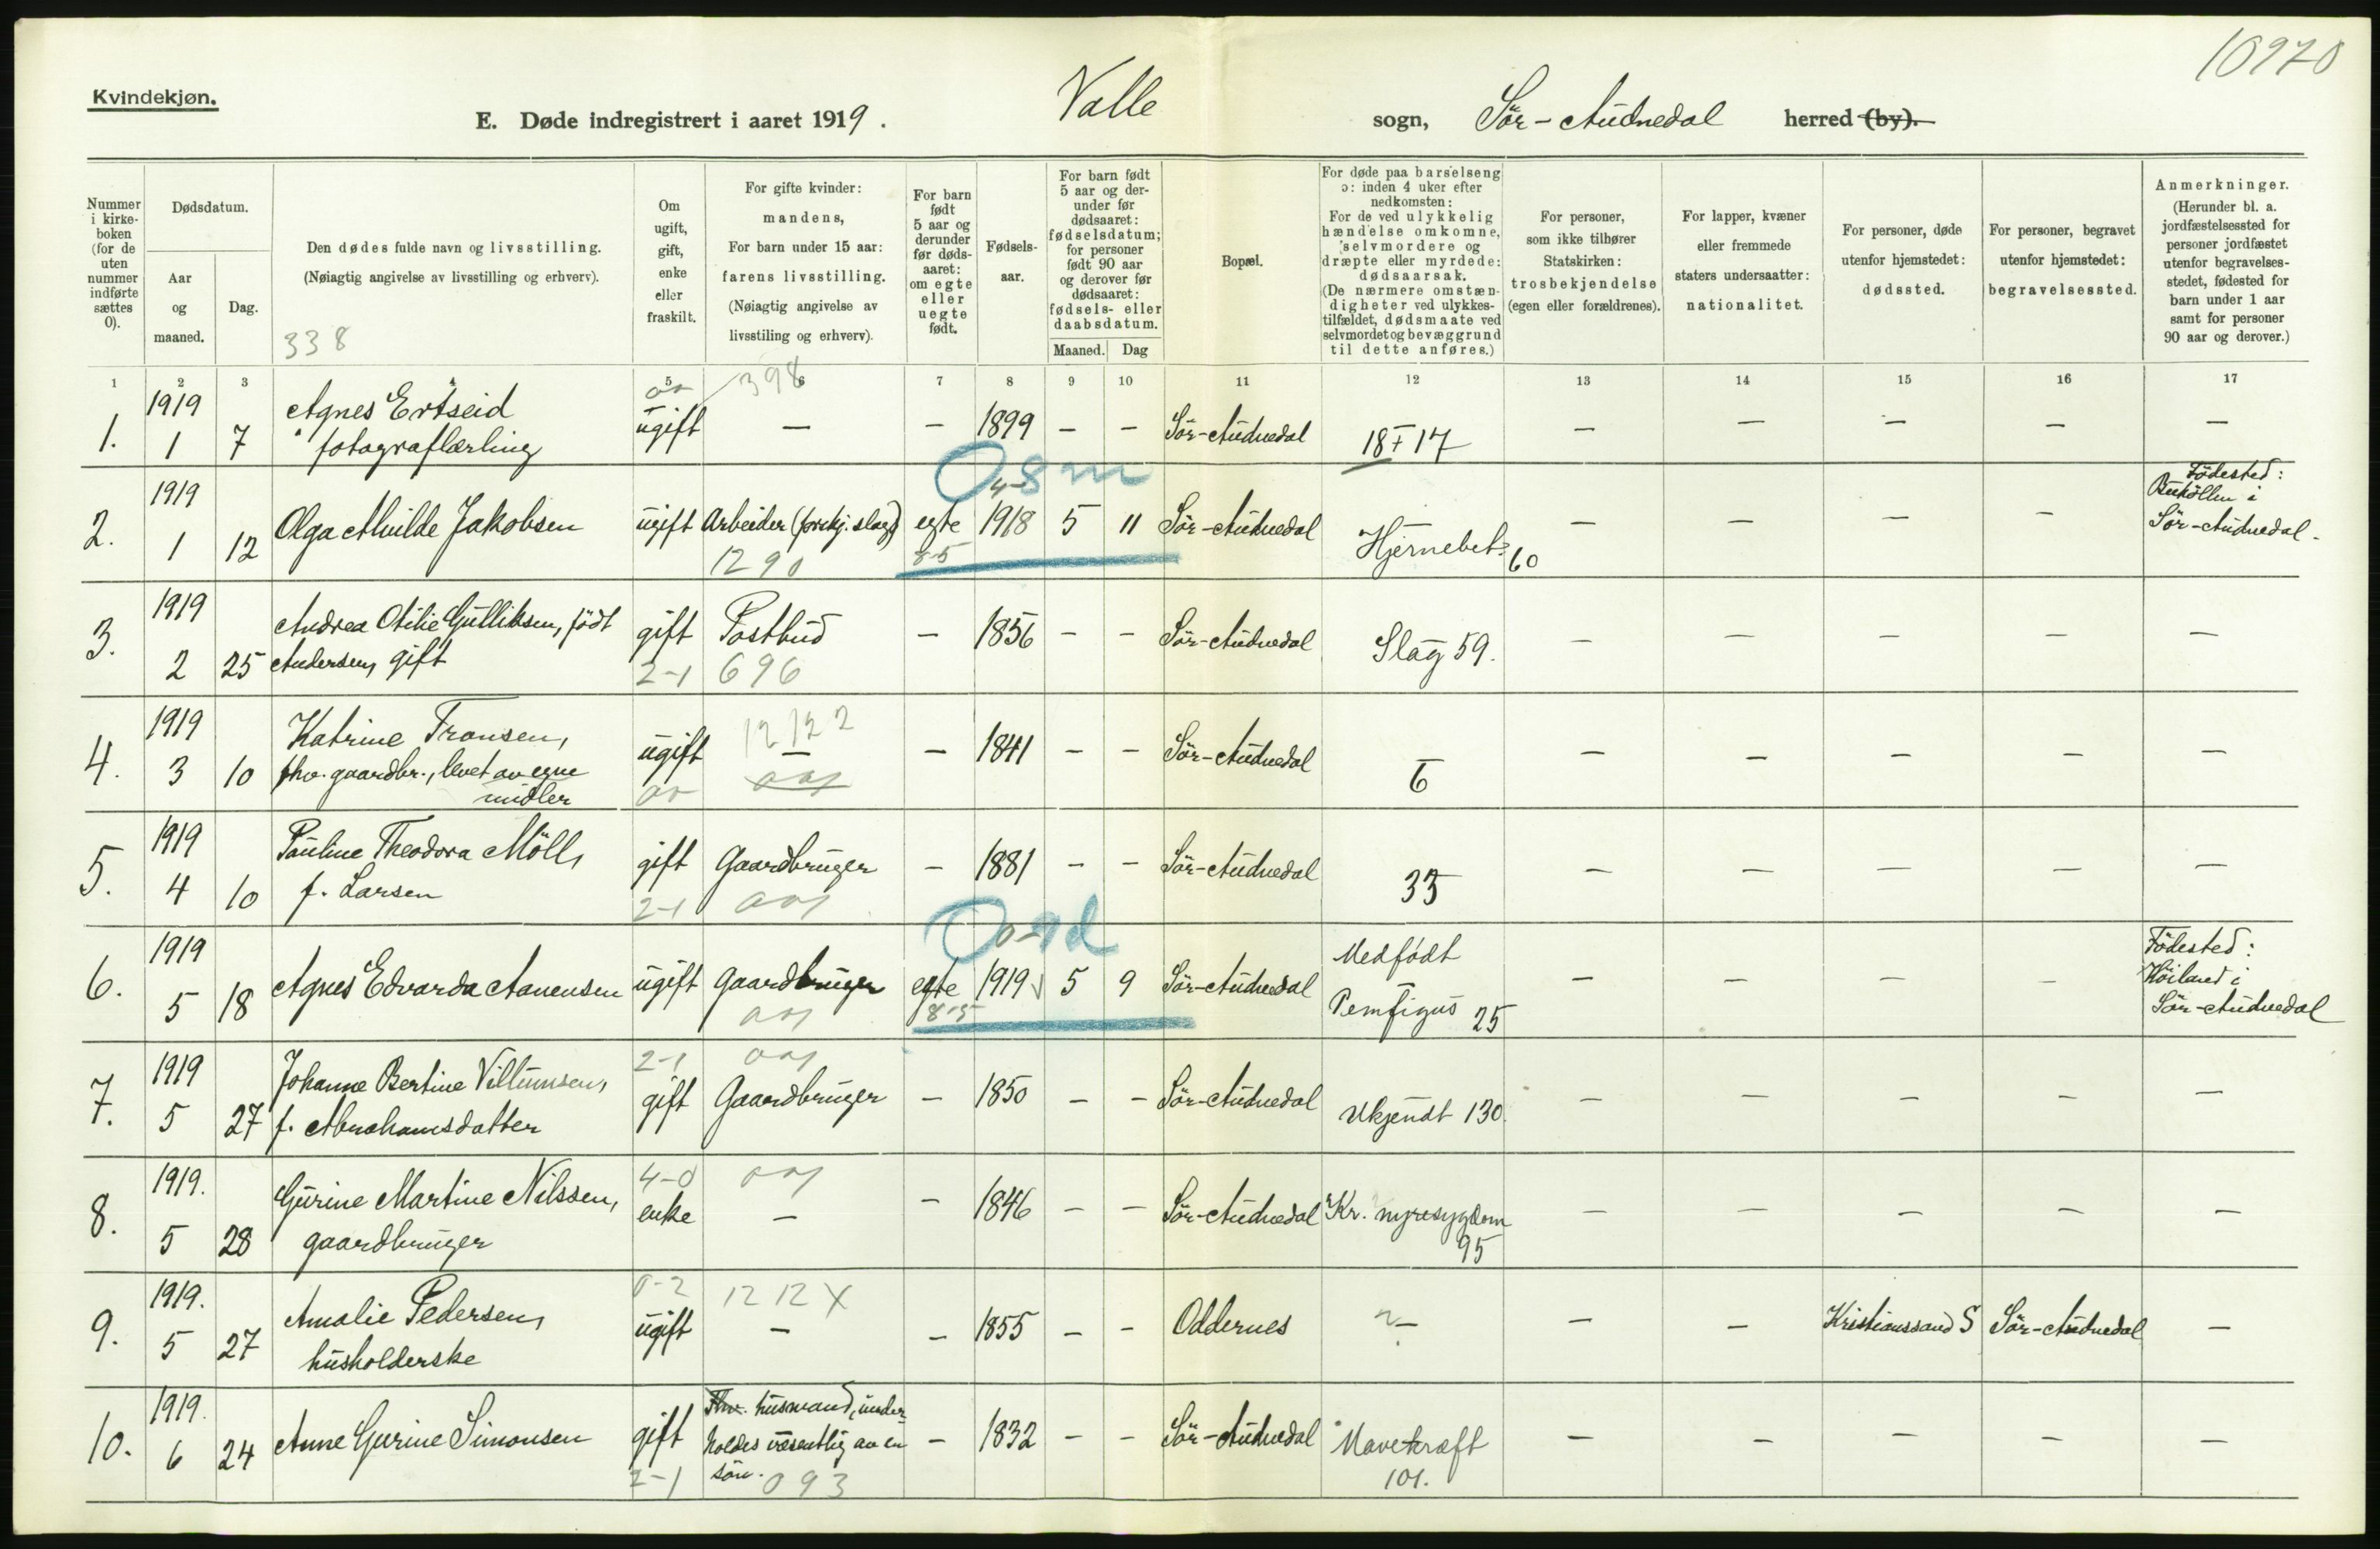 10970
Kvindekjøn.
E. Døde indregistrert i aaret 1919. Valle sogn, Sör-Audnedal herred (by).
Nummer i kirkeboken (for de uten nummer indførte sættes 0).
Dødsdatum.
Aar og maaned.
Dag.
Den dødes fulde navn og livsstilling.
(Nøiagtig angivelse av livsstilling og erhverv).
338
Om ugift, gift, enke eller fraskilt.
For gifte kvinder: mandens,
For barn under 15 aar: farens livsstilling.
(Nøiagtig angivelse av livsstiling og erhverv).
For barn født 5 aar og derunder før dødsaaret: om egte eller uegte født.
Fødselsaar.
For barn født 5 aar og derunder før dødsaaret: fødselsdatum; for personer født 90 aar og derover før dødsaaret: fødsels- eller daabsdatum.
Maaned. Dag
Bopæl.
For døde paa barselseng ɔ: inden 4 uker efter nedkomsten:
For de ved ulykkelig hændelse omkomne, selvmordere og dræpte eller myrdede: dødsaarsak.
(De nærmere omstændigheter ved ulykkestilfældet, dødsmaate ved selvmordet og bevæggrund til dette anføres.)
For personer, som ikke tilhører Statskirken: trosbekjendelse (egen eller forældrenes).
For lapper, kvæner eller fremmede staters undersaatter: nationalitet.
For personer, døde utenfor hjemstedet: dødssted.
For personer, begravet utenfor hjemstedet: begravelsessted.
Anmerkninger.
(Herunder bl. a. jordfæstelsessted for personer jordfæstet utenfor begravelsesstedet, fødested for barn under 1 aar samt for personer 90 aar og derover.)
1 2 3 4 5 6 7 8 9 10 11 12 13 14 15 16 17
398
1. 1919 1 7 Agnes Ertseid fotograflærling ugift — — 1899 — — Sör-Audnedal 18 + 17 — — — — —
0 4-8 m
2. 1919 1 12 Olga Mhilde Jakobsen ugift Arbeider (forskj. slags) egte 1918 5 11 Sör-Audnedal Hjernebet. 60 — — — — Födested: i Sör-Audnedal.
1290 85
3. 1919 2 25 Andrea Otilie Gulliksen, födt Andersen, gift gift Postbud — 1856 — — Sör-Audnedal Slag 59. — — — — —
2-1 696
4. 1919 3 10 Katrine Fransen, fhv. gaardbr., levet av egne midler ugift — — 1841 — — Sör-Audnedal 6 — — — — —
12122
5. 1919 4 10 Pauline Theodora Möll, f. Larsen gift Gaardbruger — 1881 — — Sör-Audnedal 33 — — — — —
2-1
0 0-9d
6. 1919 5 18 Agnes Edvarda Aanensen ugift Gaardbruger egte 1919 5 9 Sör-Audnedal Medfødt Pemfigus 25 — — — — Födested: Höiland i Sör-Audnedal
85
7. 1919 5 27 Johanne Bertine Villumsen, f. Abrahamsdatter gift Gaardbruger — 1850 — — Sör-Audnedal Ukjendt 130. — — — — —
2-1
8. 1919. 5 28 Gurine Martine Nilssen, gaardbruger enke — — 1846 — — Sör-Audnedal Kr. nyresygdom 95 — — — — —
4-0
9. 1919. 5 27 Amalie Pedersen, husholderske ugift — — 1855 — — Oddernes — — — Kristianssand S Sör-Audnedal —
0-2 1212X
10. 1919. 6 24 Anne Gurine Simonsen gift Fhv. husmand, underholdes væsentlig av en sön. — 1832 — — Sör-Audnedal Mavekræft 101. — — — — —
2-1 093